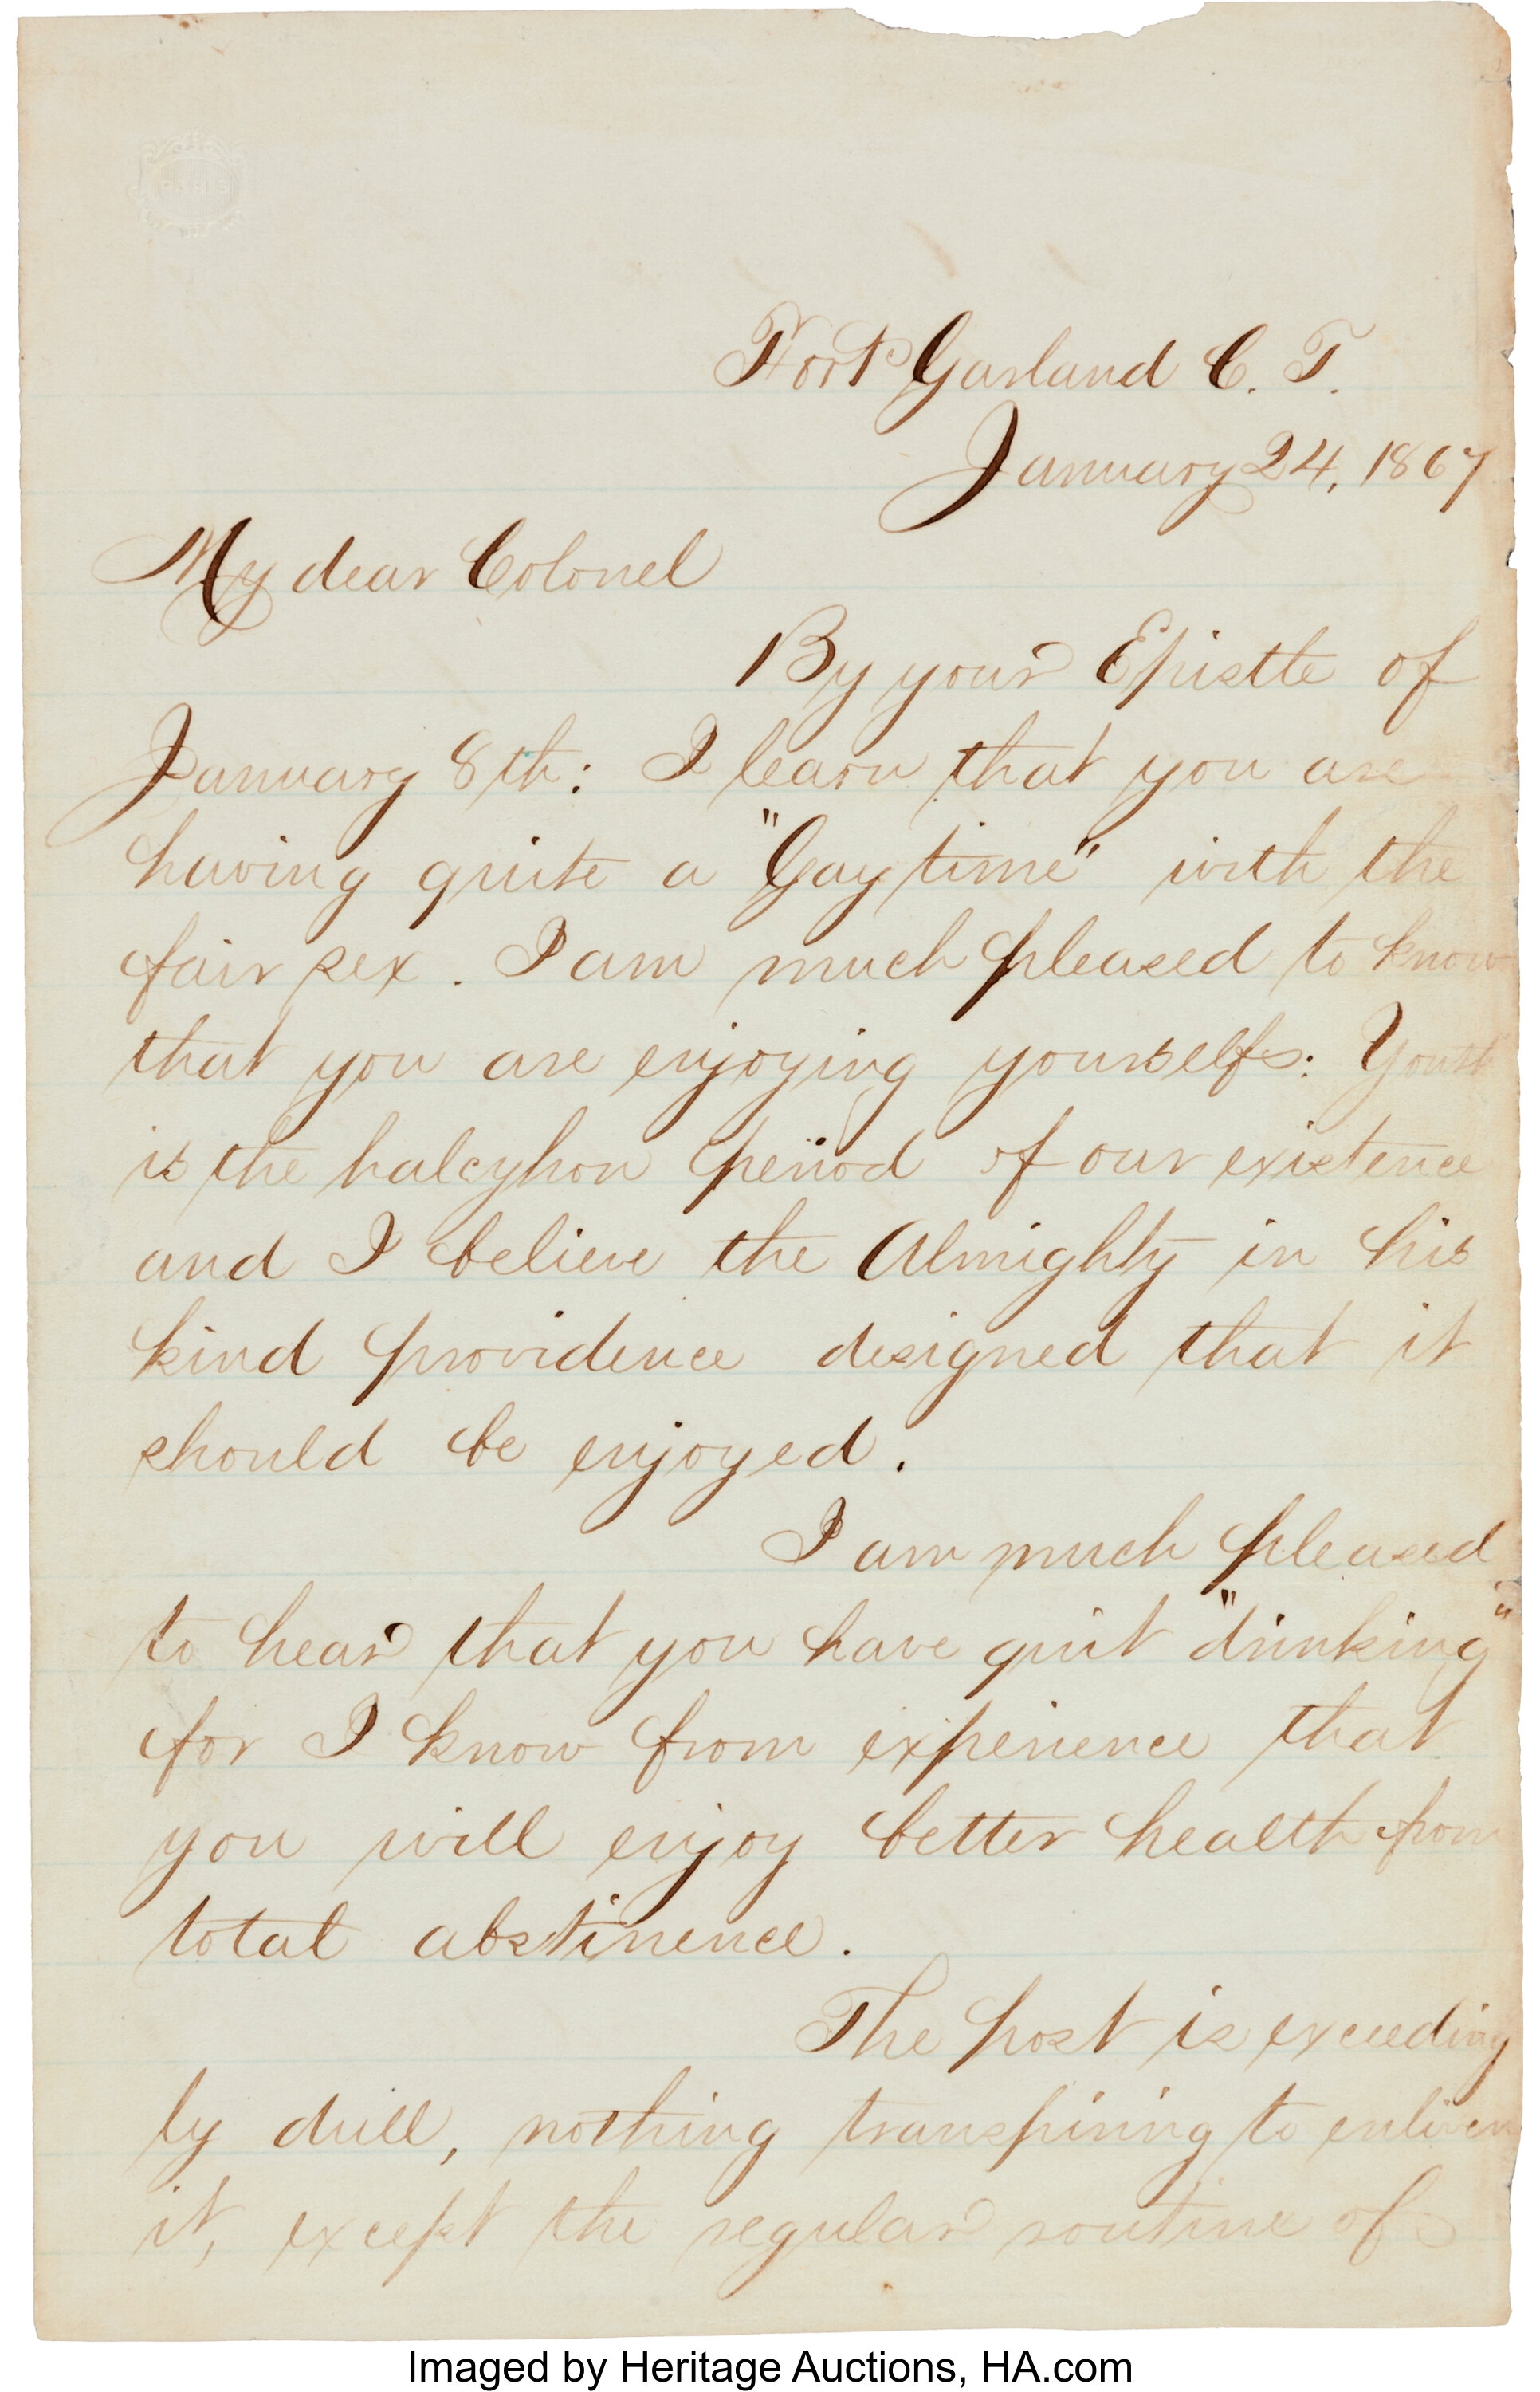 PARIS
Fort Garland C. T.
January 24, 1867
My dear Colonel
By your Epistle of
January 8th: I learn that you are
having quite a "Gay time" with the
fair sex. I am much pleased to know
that you are enjoying yourselfs: Youth
is the halcyhon period of our existence
and I believe the Almighty in his
kind providence designed that it
should be enjoyed.
I am much pleased
to hear that you have quit "drinking"
for I know from experience that
you will enjoy better health from
total abstinence.
The post is exceeding
ly dull, nothing transpiring to enliven
it, except the regular routine of
Imaged by Heritage Auctions, HA.com